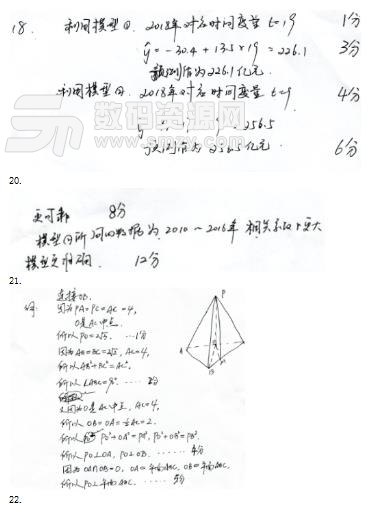 18. 利用模型①. 2018年对应时间变量 t=19 1分
ŷ = -30.4 + 13.5×19 = 226.1 3分
预测值为226.1亿元.
利用模型②. 2018年对应时间变量 t=9 4分
256.5
预测值为256.5亿元. 6分
20.
更可靠 8分
模型②所 的数据为 2010～2016年 相关系数r更大
模型更准确. 12分
21.
解: 连接OB.
因为PA=PC=AC=4,
O是AC中点.
所以PO=2√3. ……1分
因为AB=BC=2√2, AC=4,
所以AB²+BC²=AC².
所以∠ABC=90°. ……2分
又因为O是AC中点, AC=4,
所以OB=OA=½AC=2.
所以 PO²+OA²=PA², PO²+OB²=PB².
所以PO⊥OA, PO⊥OB. ……4分
因为OA∩OB=O, OA⊂平面ABC, OB⊂平面ABC.
所以PO⊥平面ABC. ……5分
P
A
O
M
B
22.
数码资源网